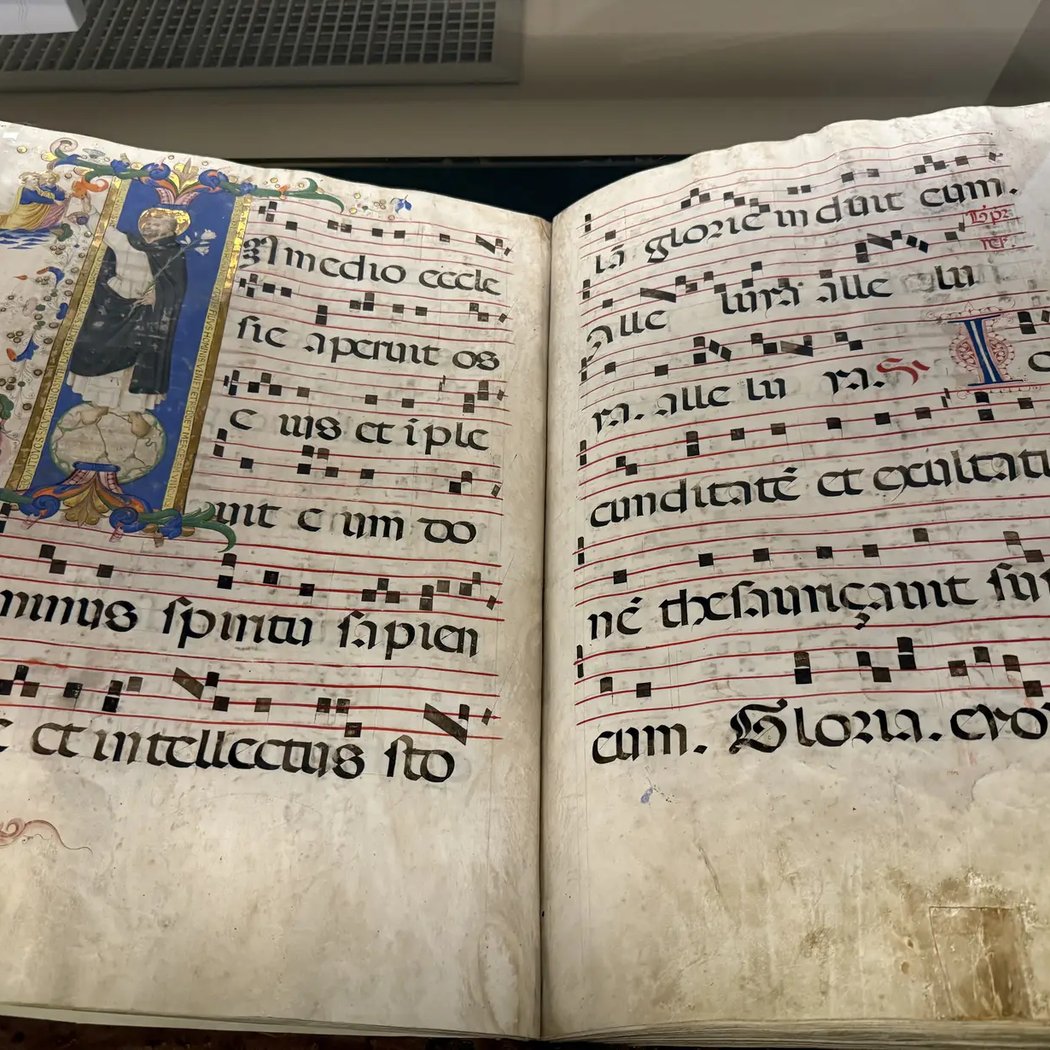 In medio eccle
sie aperuit os
eius et iple
uit eum do
minus spiritu sapien
e et intellectus sto
lā glorie induit eum.
Alle luya alle lu
ya. alle lu ya.
cunditatē et exultati
nē thesauriçauit sup
eum. Gloria. evo